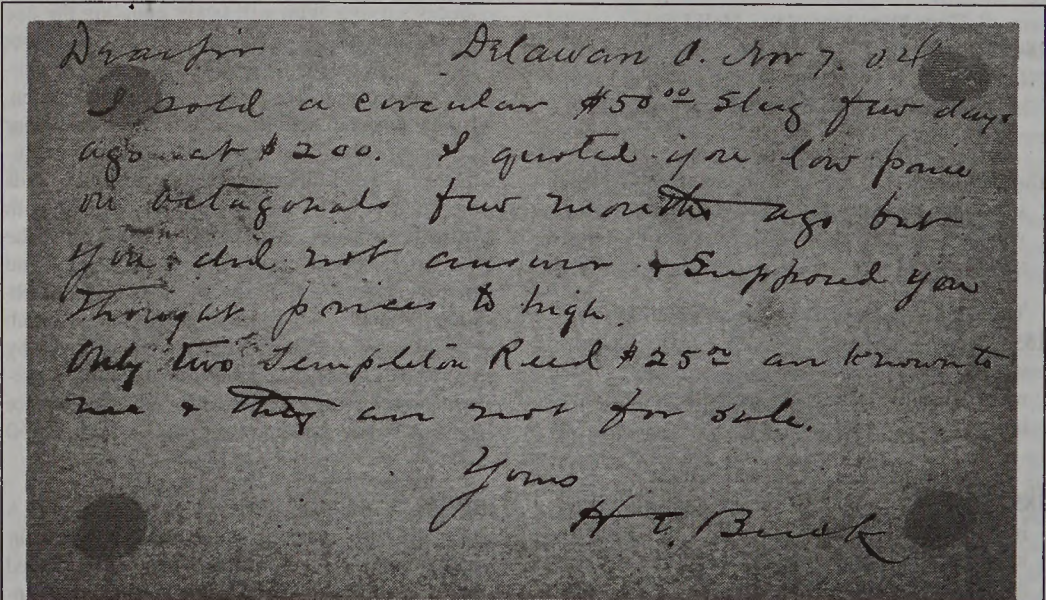 Dear Sir Delawan O. Nov 7. 04
I sold a circular $50 00 Slug few days
ago at $200. I quoted you low price
on octagonals few months ago but
you did not answer & Supposed you
thought prices to high.
Only two Templeton Reid $25 00 are known to
me & they are not for sale.
Yours
H E. Buck